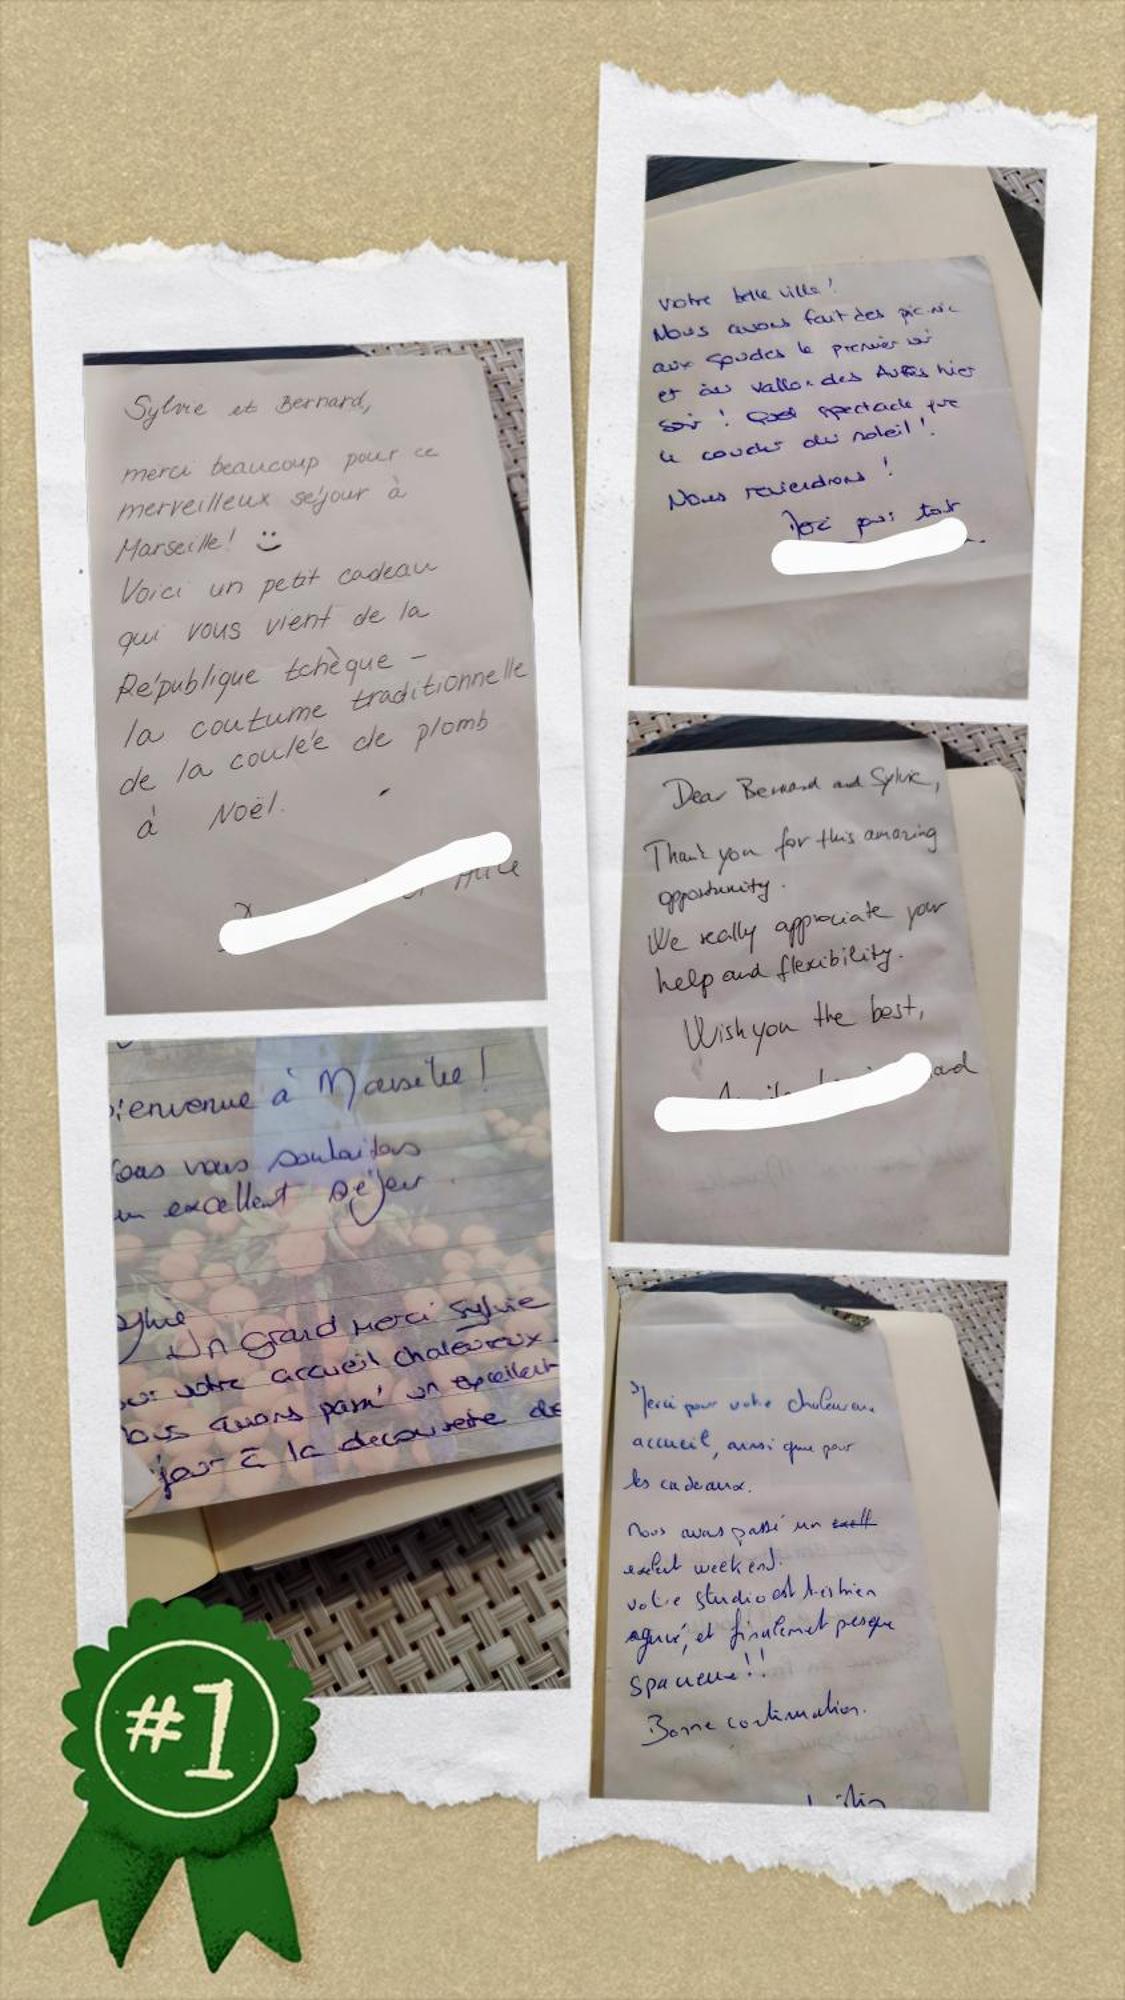 Sylvie et Bernard,
merci beaucoup pour ce
merveilleux séjour à
Marseille!
Voici un petit cadeau
qui vous vient de la
République tchèque –
la coutume traditionnelle
de la coulée de plomb
à Noël.
ienvenue à Marseille!
ous vous souhaitons
un excellent séjour.
ylvie
Un Grand Merci Sylvie
votre accueil chaleureux
ous avons passé un excellent
jour à la decouverte de
#1
Votre belle ville!
Nous avons fait des pic-nic
aux Goudes le premier soir
et au vallon des Auffes hier
soir! Quel spectacle que
le coucher du soleil!
Nous reviendrons!
Merci pour tout
Dear Bernard and Sylvie,
Thank you for this amazing
opportunity.
We really appreciate your
help and flexibility.
Wish you the best,
Merci pour votre chaleureux
accueil, ainsi que pour
les cadeaux.
Nous avons passé un
weekend.
votre studio est très bien
et finalement presque
spacieux!!
Bonne continuation.